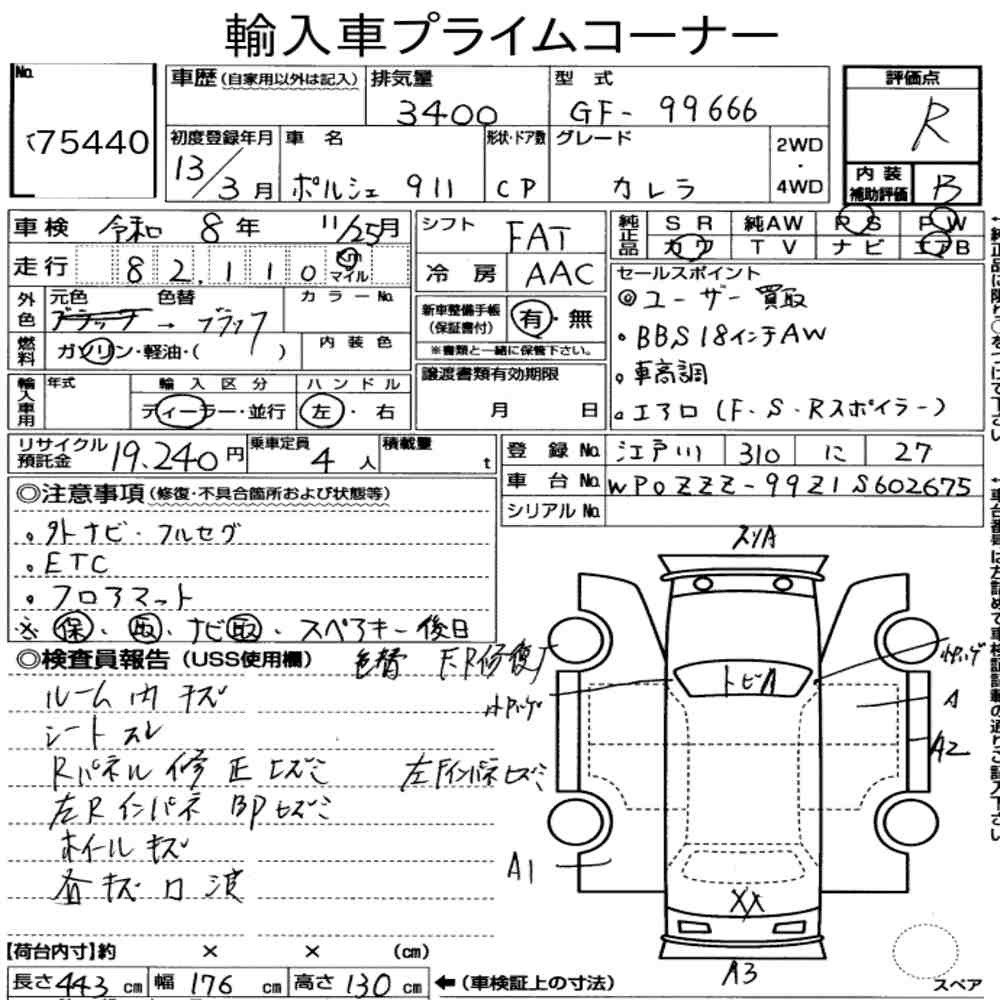 輸入車プライムコーナー
No.
75440
車歴(自家用以外は記入)
排気量
3400
型式
GF-99666
評価点
R
初度登録年月
13/3月
車名
ポルシェ 911
形状・ドア数
CP
グレード
カレラ
2WD
・
4WD
内装
補助評価
B
車検 令和 8年 11/25月
走行 82,110 km
マイル
シフト
FAT
冷房 AAC
純正品
SR 純AW PS PW
カワ TV ナビ エアB
外色
元色 色替 カラーNo.
ブラック → ブラック
燃料
ガソリン・軽油・( )
内装色
新車整備手帳
(保証書付)
有・無
※書類と一緒に保管下さい。
セールスポイント
◎ユーザー買取
・BBS18インチAW
・車高調
・エアロ(F・S・Rスポイラー)
輸入車用
年式
輸入区分
ディーラー・並行
ハンドル
左・右
譲渡書類有効期限
月 日
リサイクル
預託金
19,240円
乗車定員
4人
積載量
t
登録No. 江戸川 310 に 27
車台No. WP0ZZZ-99Z1S602675
シリアルNo.
◎注意事項(修復・不具合箇所および状態等)
・外ナビ・フルセグ
・ETC
・フロアマット
※保・取・ナビ取・スペアキー後日
◎検査員報告(USS使用欄) 色替 F,R修復
ルーム内キズ
シートスレ
Rパネル修正ヒズミ 左Fインパネヒズミ
左Rインパネ BPヒズミ
ホイールキズ
キズ 波
スリA
トビA
A
A2
A1
XX
A3
【荷台内寸】約 × × (cm)
長さ443cm 幅176cm 高さ130cm ←(車検証上の寸法)
スペア